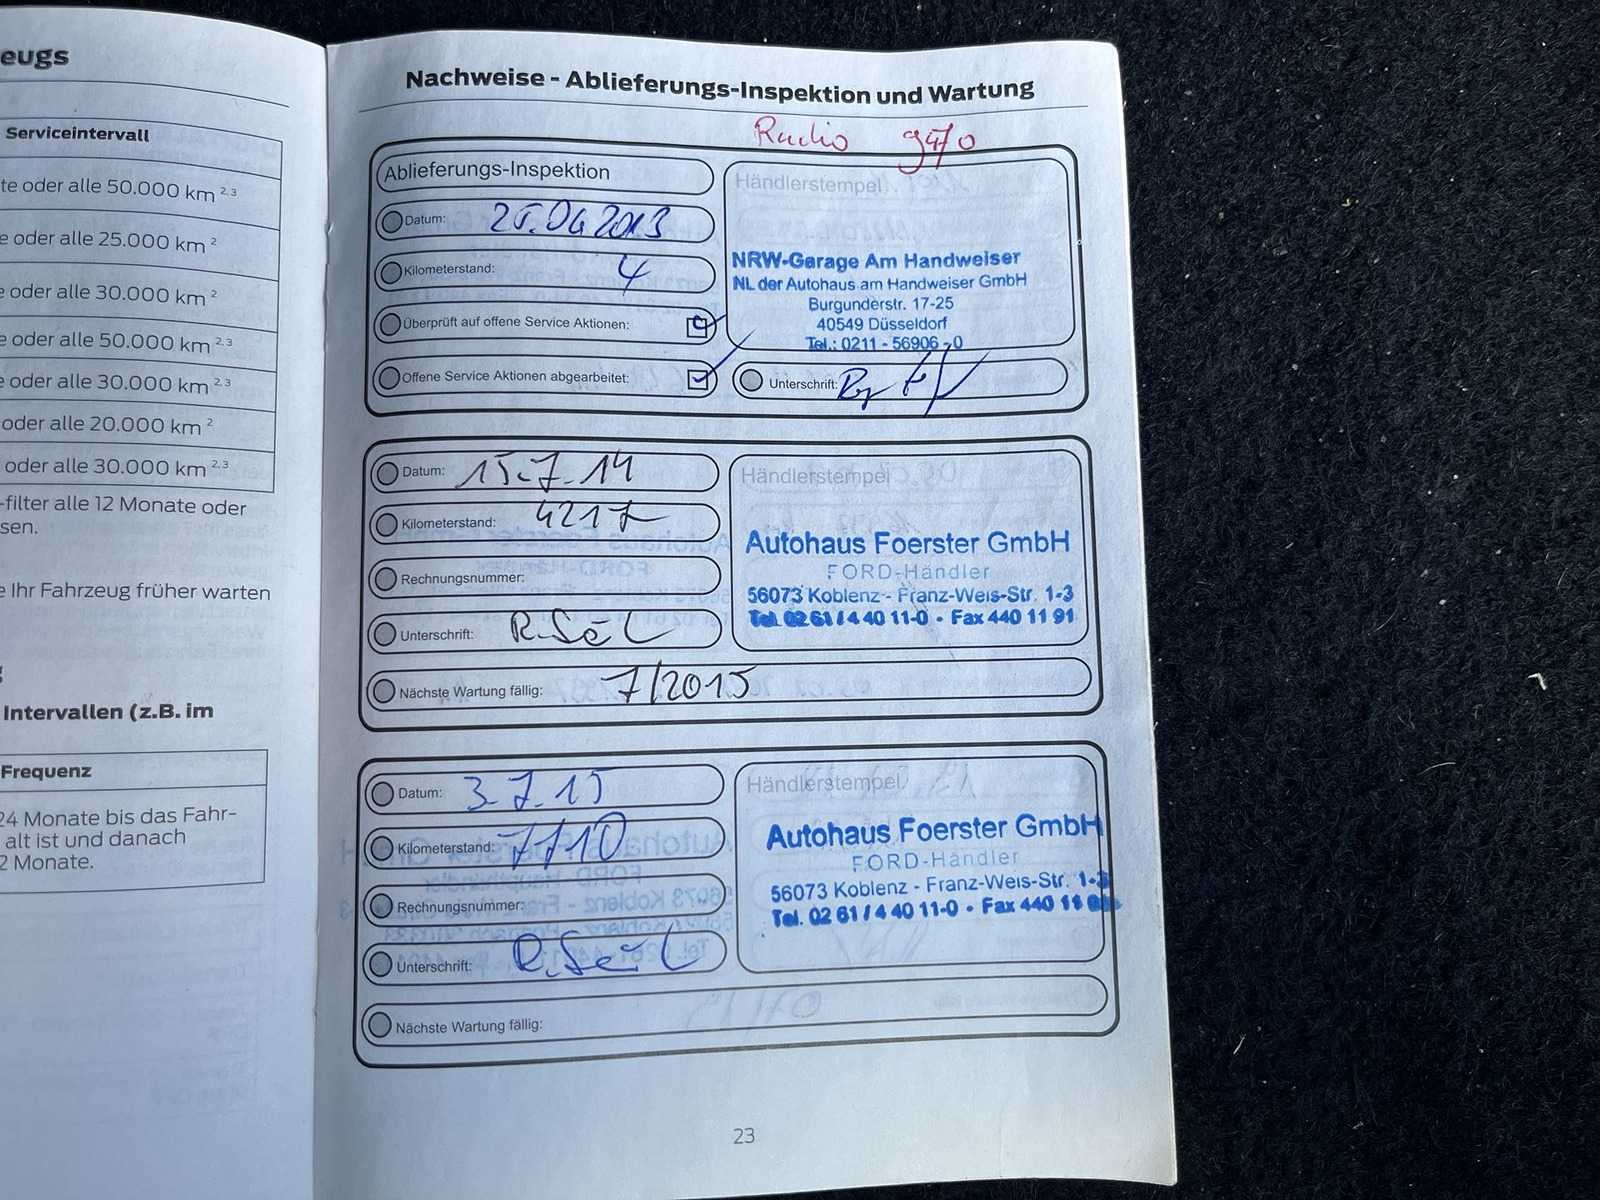 eugs
Serviceintervall
te oder alle 50.000 km 2,3
e oder alle 25.000 km 2
e oder alle 30.000 km 2
e oder alle 50.000 km 2,3
e oder alle 30.000 km 2,3
oder alle 20.000 km 2
oder alle 30.000 km 2,3
-filter alle 12 Monate oder
sen.
e Ihr Fahrzeug früher warten
Intervallen (z.B. im
Frequenz
24 Monate bis das Fahr-
alt ist und danach
2 Monate.
Nachweise - Ablieferungs-Inspektion und Wartung
Radio 9470
Ablieferungs-Inspektion
Datum: 25.04.2013
Kilometerstand: 4
Überprüft auf offene Service Aktionen:
Offene Service Aktionen abgearbeitet:
Händlerstempel
NRW-Garage Am Handweiser
NL der Autohaus am Handweiser GmbH
Burgunderstr. 17-25
40549 Düsseldorf
Tel.: 0211 - 56906 - 0
Unterschrift:
Datum: 15.7.14
Kilometerstand: 4217
Rechnungsnummer:
Unterschrift:
Nächste Wartung fällig: 7/2015
Händlerstempel
Autohaus Foerster GmbH
FORD-Händler
56073 Koblenz - Franz-Weis-Str. 1-3
Tel. 02 61 / 4 40 11-0 • Fax 440 11 91
Datum: 3.7.15
Kilometerstand: 7710
Rechnungsnummer:
Unterschrift:
Nächste Wartung fällig:
Händlerstempel
Autohaus Foerster GmbH
FORD-Händler
56073 Koblenz - Franz-Weis-Str. 1-3
Tel. 02 61 / 4 40 11-0 • Fax 440 11
23